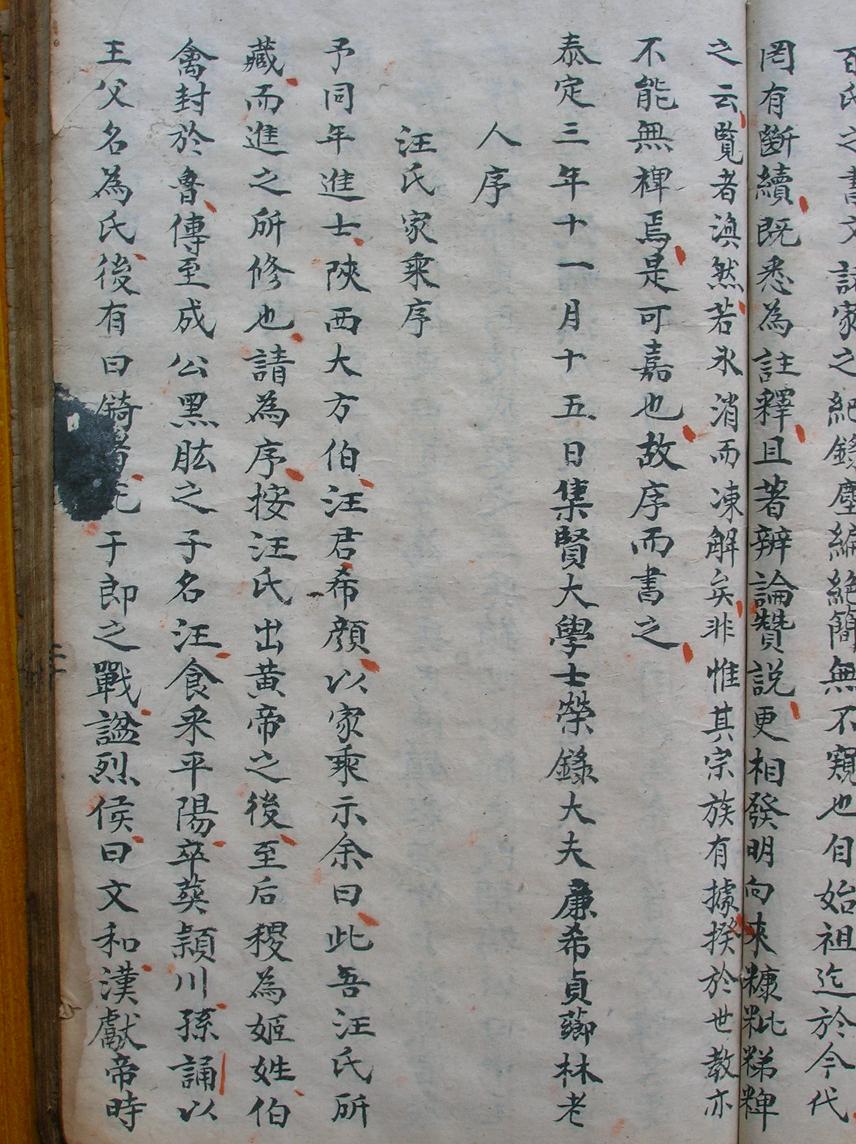 百氏之書文記家之紀錄塵編絕簡無不窺也自始祖迄於今代
罔有斷續既悉為註釋且著辨論贊說更相發明向來糠粃稊稗
之云覧者渙然若氷消而凍解矣非惟其宗族有據揆於世教亦
不能無裨焉是可嘉也故序而書之
泰定三年十一月十五日集賢大學士榮錄大夫廉希貞薌林老
人序
汪氏家乘序
予同年進士陝西大方伯汪君希顔以家乘示余曰此吾汪氏所
藏而進之所修也請為序按汪氏出黄帝之後至后稷為姬姓伯
禽封於魯傳至成公黑肱之子名汪食采平陽卒葬潁川孫誦以
王父名為氏後有曰錡者死于郎之戰謚烈侯曰文和漢獻帝時